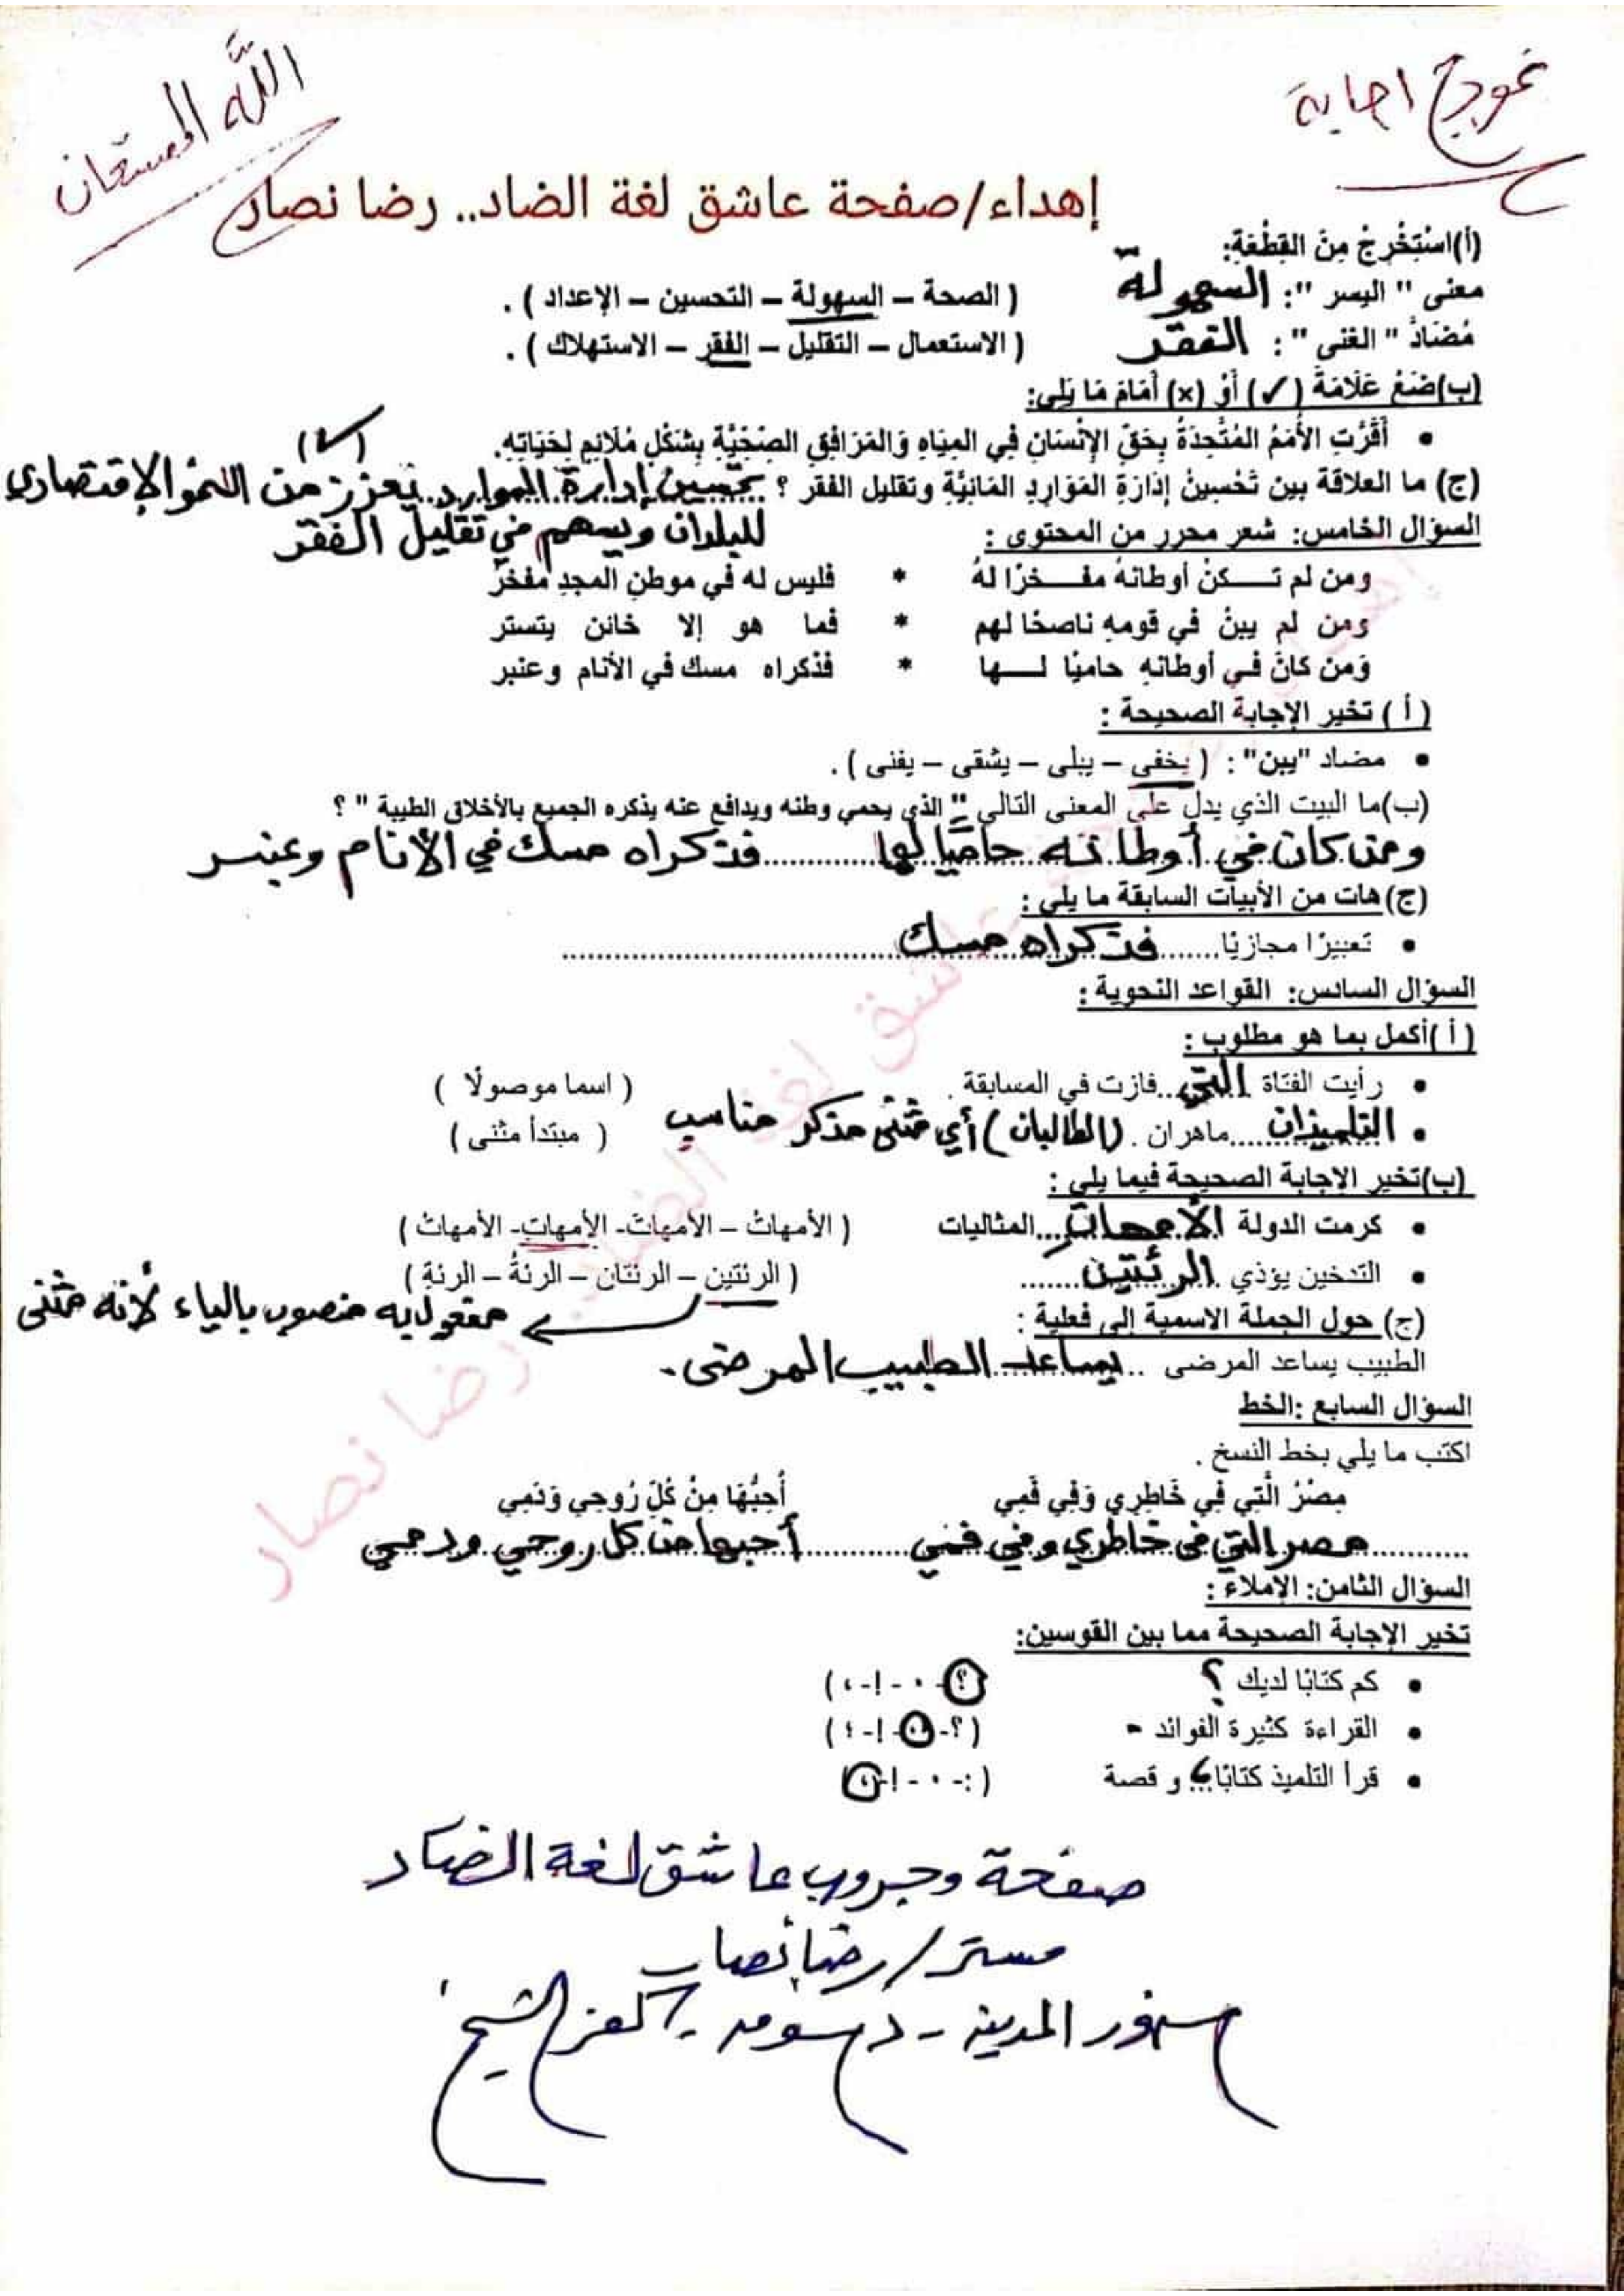 نموذج اجابة
الله المستعان
إهداء/صفحة عاشق لغة الضاد.. رضا نصار
(أ)اسْتَخْرِجْ مِنَ القِطْعَةِ:
معنى " اليسر ": السهولة ( الصحة – السهولة – التحسين – الإعداد ) .
مُضَادَّ " الغنى " : الفقر ( الاستعمال – التقليل – الفقر – الاستهلاك ) .
(ب)ضَعْ عَلَامَةَ (✓) أَوْ (×) أَمَامَ مَا يَلِي:
• أَقَرَّتِ الأُمَمُ المُتَّحِدَةُ بِحَقِّ الإِنْسَانِ فِي المِيَاهِ وَالمَرَافِقِ الصِّحِّيَّةِ بِشَكْلٍ مُلَائِمٍ لِحَيَاتِهِ. (✓)
(ج) ما العلاقة بين تَحْسِينُ إِدَارَةِ المَوَارِدِ المَائِيَّةِ وتقليل الفقر ؟ تحسين إدارة الموارد يعزز من النمو الإقتصادي
للبلدان ويسهم في تقليل الفقر
السؤال الخامس: شعر محرر من المحتوى :
ومن لم تـــكنْ أوطانهُ مفـــخرًا لهُ * فليس له في موطنِ المجدِ مفخرُ
ومن لم يبنْ في قومهِ ناصحًا لهم * فما هو إلا خائن يتستر
وَمن كانَ في أوطانهِ حاميًا لـــها * فذكراه مسك في الأنام وعنبر
( أ ) تخير الإجابة الصحيحة :
• مضاد "يبن" : ( يخفى – يبلى – يشقى – يفنى ) .
(ب)ما البيت الذي يدل على المعنى التالي " الذي يحمي وطنه ويدافع عنه يذكره الجميع بالأخلاق الطيبة " ؟
ومن كان في أوطانه حاميًا لها فذكراه مسك في الأنام وعنبر
(ج)هات من الأبيات السابقة ما يلي :
• تعبيرًا مجازيًا فذكراه مسك
السؤال السادس: القواعد النحوية :
( أ )أكمل بما هو مطلوب :
• رأيت الفتاة التي فازت في المسابقة . ( اسما موصولًا )
• التلميذان ماهران . (الطالبان) أي مثنى مذكر مناسب ( مبتدأ مثنى )
(ب)تخير الإجابة الصحيحة فيما يلي :
• كرمت الدولة الأمهاتِ المثاليات ( الأمهاتُ – الأمهاتَ- الأمهاتِ- الأمهاتْ )
• التدخين يؤذي الرئتين ( الرئتين – الرئتان – الرئةُ – الرئةِ )
مفعول به منصوب بالياء لأنه مثنى
(ج) حول الجملة الاسمية إلى فعلية :
الطبيب يساعد المرضى يساعد الطبيب المرضى .
السؤال السابع :الخط
اكتب ما يلي بخط النسخ .
مِصْرُ الَّتِي فِي خَاطِرِي وَفِي فَمِي أُحِبُّهَا مِنْ كُلِّ رُوحِي وَدَمِي
مصر التي في خاطري وفي فمي أحبها من كل روحي ودمي
السؤال الثامن: الإملاء :
تخير الإجابة الصحيحة مما بين القوسين:
• كم كتابًا لديك ؟ (؟- . - !- ،)
• القراءة كثيرة الفوائد . (؟- . - !- ؛)
• قرأ التلميذ كتابًا ، و قصة ( :- . - !- ،)
صفحة وجروب عاشق لغة الضاد
مستر/ رضا نصار
سنهور المدينة - دسوق - كفر الشيخ